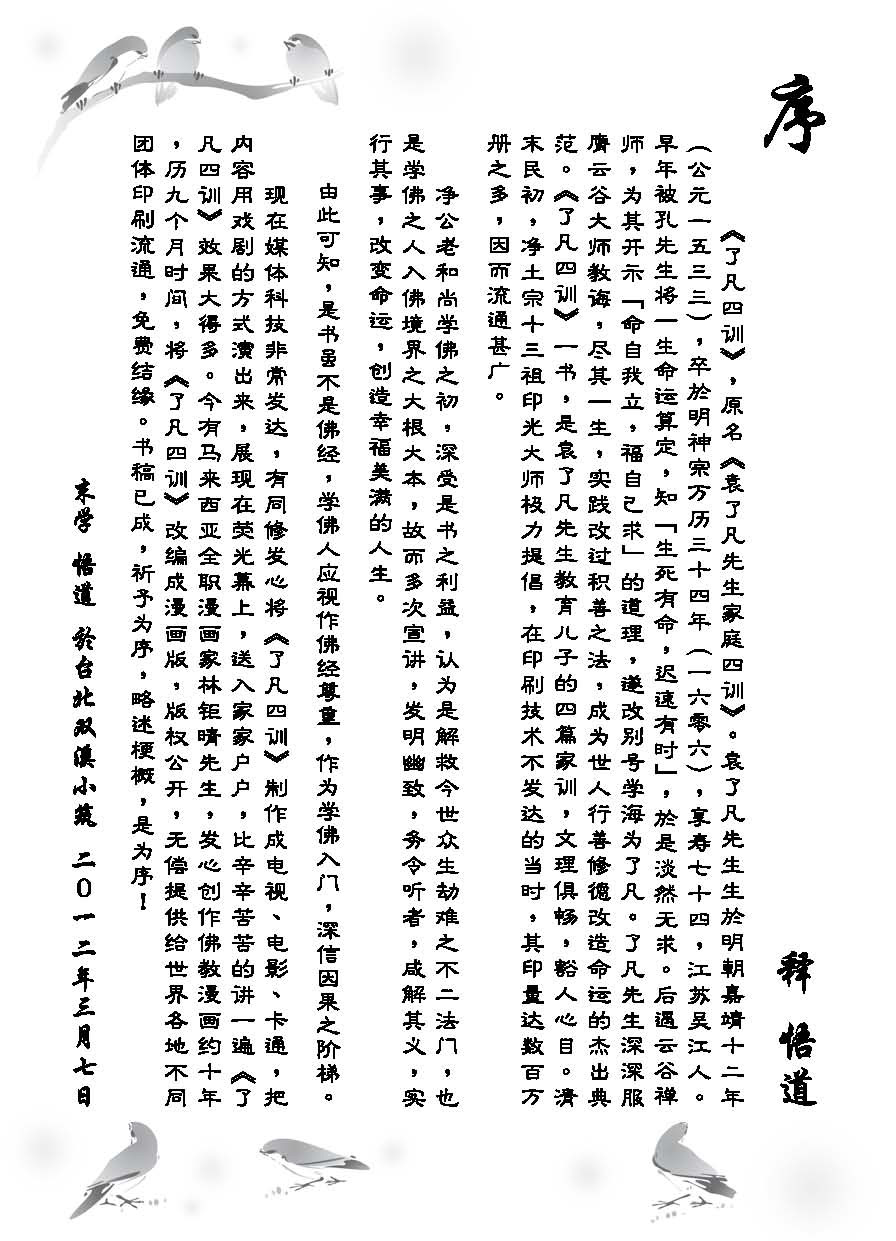 序
释 悟道
《了凡四训》，原名《袁了凡先生家庭四训》。袁了凡先生生於明朝嘉靖十二年
（公元一五三三），卒於明神宗万历三十四年（一六零六），享寿七十四，江苏吴江人。
早年被孔先生将一生命运算定，知「生死有命，迟速有时」，於是淡然无求。后遇云谷禅
师，为其开示「命自我立，福自己求」的道理，遂改别号学海为了凡。了凡先生深深服
膺云谷大师教诲，尽其一生，实践改过积善之法，成为世人行善修德改造命运的杰出典
范。《了凡四训》一书，是袁了凡先生教育儿子的四篇家训，文理俱畅，豁人心目。清
末民初，净土宗十三祖印光大师极力提倡，在印刷技术不发达的当时，其印量达数百万
册之多，因而流通甚广。
净公老和尚学佛之初，深受是书之利益，认为是解救今世众生劫难之不二法门，也
是学佛之人入佛境界之大根大本，故而多次宣讲，发明幽致，务令听者，咸解其义，实
行其事，改变命运，创造幸福美满的人生。
由此可知，是书虽不是佛经，学佛人应视作佛经尊重，作为学佛入门，深信因果之阶梯。
现在媒体科技非常发达，有同修发心将《了凡四训》制作成电视、电影、卡通，把
内容用戏剧的方式演出来，展现在荧光幕上，送入家家户户，比辛辛苦苦的讲一遍《了
凡四训》效果大得多。今有马来西亚全职漫画家林钜晴先生，发心创作佛教漫画约十年
，历九个月时间，将《了凡四训》改编成漫画版，版权公开，无偿提供给世界各地不同
团体印刷流通，免费结缘。书稿已成，祈予为序，略述梗概，是为序！
末学 悟道 於台北双溪小筑 二〇一二年三月七日